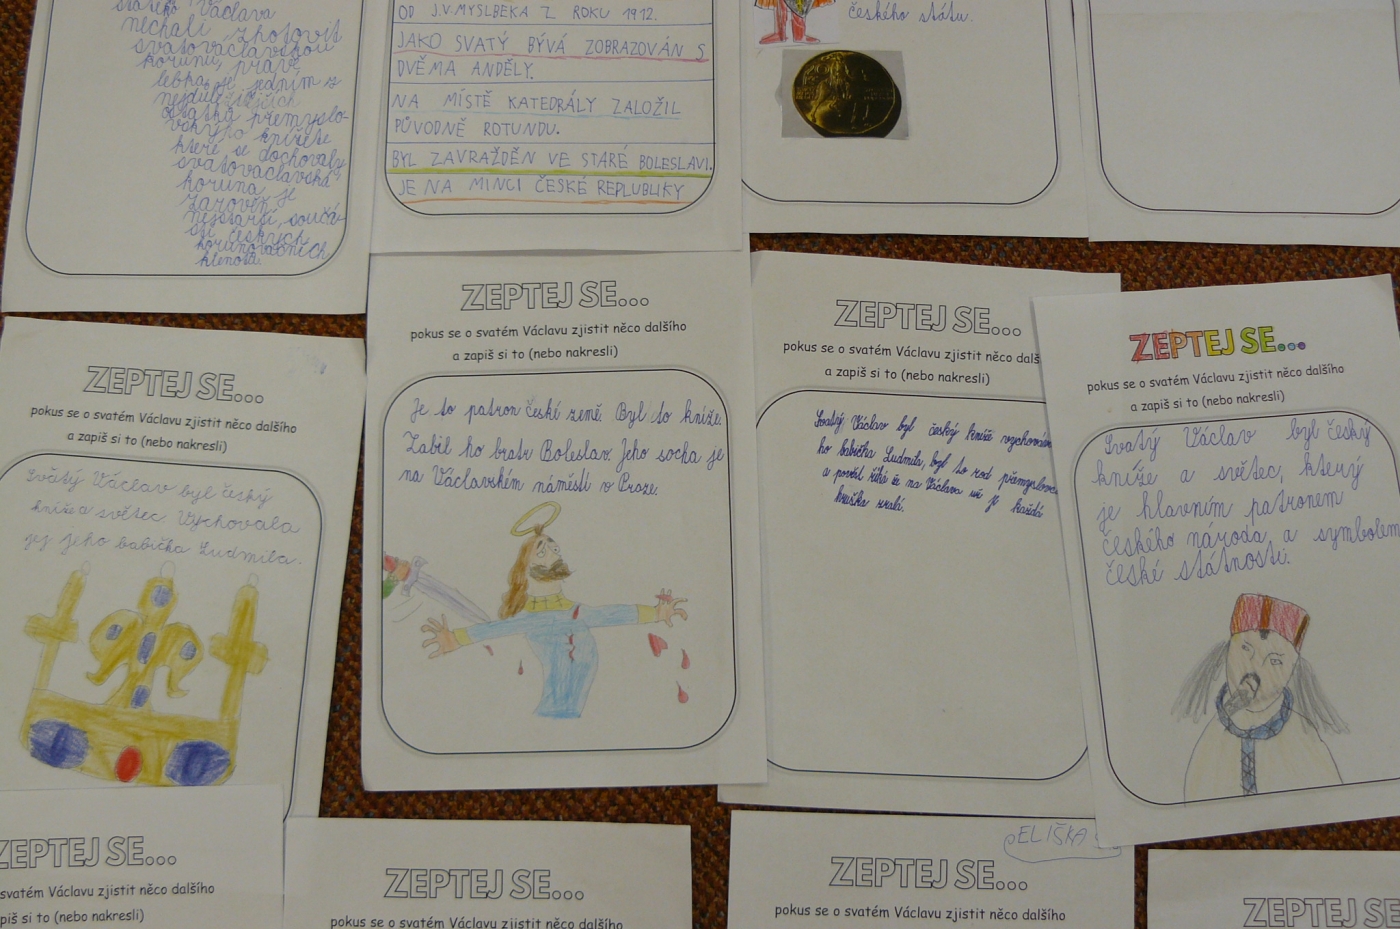 Václava
nechali zhotovit
svatováclavskou
korunu, právě
lebka je jedním z
nejdůležitějších
ostatků přemyslo-
vského knížete
které se dochovaly
svatováclavská
koruna je
zároveň
nejstarší, součá-
stí českých
korunovačních
klenotů.
OD J.V.MYSLBEKA Z ROKU 1912.
JAKO SVATÝ BÝVÁ ZOBRAZOVÁN S
DVĚMA ANDĚLY.
NA MÍSTĚ KATEDRÁLY ZALOŽIL
PŮVODNĚ ROTUNDU.
BYL ZAVRAŽDĚN VE STARÉ BOLESLAVI.
JE NA MINCI ČESKÉ REPLUBLIKY
českého státu.
ZEPTEJ SE...
pokus se o svatém Václavu zjistit něco dalšího
a zapiš si to (nebo nakresli)
Svatý Václav byl český
kníže a světec Vychovala
jej jeho babička Ludmila.
ZEPTEJ SE...
pokus se o svatém Václavu zjistit něco dalšího
a zapiš si to (nebo nakresli)
Je to patron české země. Byl to kníže.
Zabil ho bratr Boleslav. Jeho socha je
na Václavském náměstí v Praze.
ZEPTEJ SE...
pokus se o svatém Václavu zjistit něco dalš
a zapiš si to (nebo nakresli)
Svatý Václav byl český kníže vychováv
ho babička Ludmila, byl to rod přemyslovc
a pověst říká že na Václava už je každá
hruška zralá.
ZEPTEJ SE...
pokus se o svatém Václavu zjistit něco dalšího
a zapiš si to (nebo nakresli)
Svatý Václav byl český
kníže a světec, který
je hlavním patronem
českého národa a symbolem
české státnosti.
ZEPTEJ SE...
svatém Václavu zjistit něco dalšího
zapiš si to (nebo nakresli)
ZEPTEJ SE...
pokus se o svatém Václavu zjistit něco dalšího
ELIŠKA
ZEPTEJ SE...
pokus se o svatém Václavu zjistit něco dalšího
ZEPTEJ SE